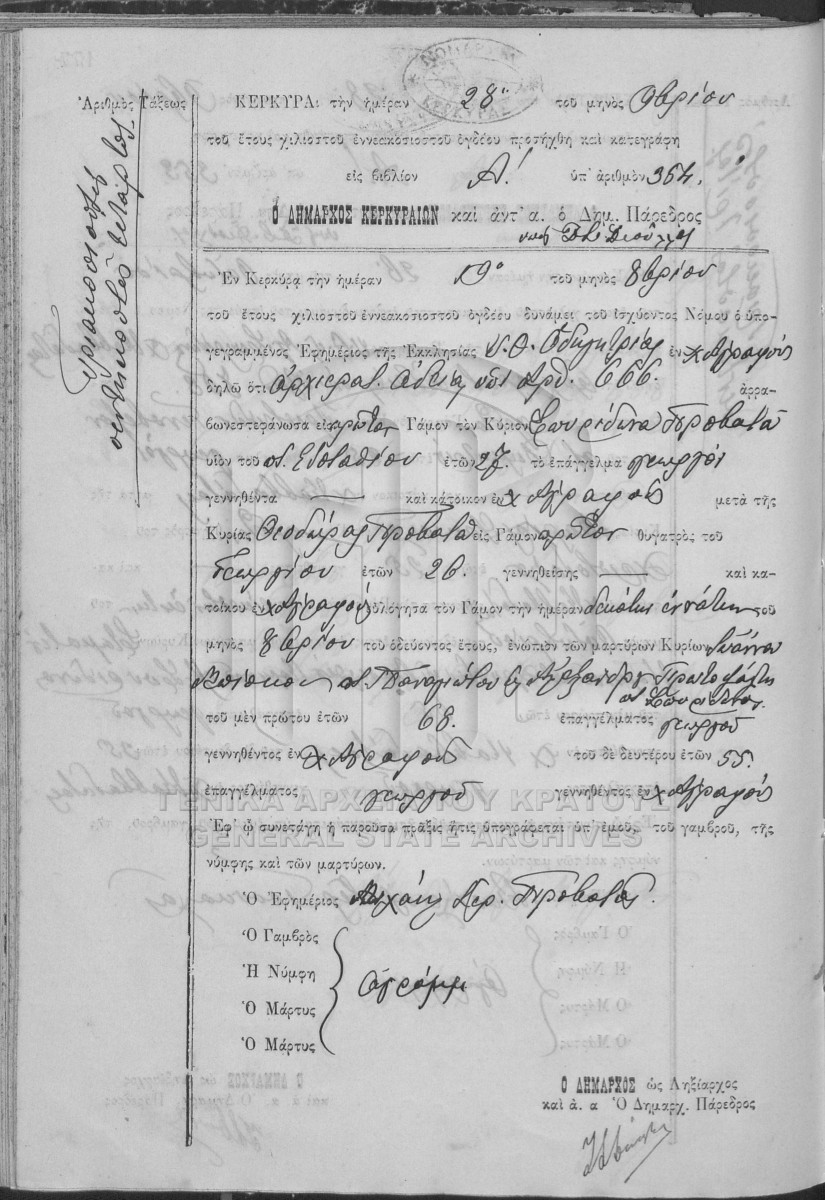 Ἀριθμὸς Τάξεως
Τριακοσιοστὸς
πεντηκοστὸς τέταρτος.
ΝΟΜΑΡΧΙΑ
ΚΕΡΚΥΡΑΣ
ΚΕΡΚΥΡΑ: τὴν ἡμέραν 28ῃ τοῦ μηνὸς 9βρίου
τοῦ ἔτους χιλιοστοῦ ἐννεακοσιοστοῦ ὀγδόου προσήχθη καὶ κατεγράφη
εἰς βιβλίον Α! ὑπ' ἀριθμὸν 354.
Ὁ ΔΗΜΑΡΧΟΣ ΚΕΡΚΥΡΑΙΩΝ καὶ ἀντ' α. ὁ Δημ. Πάρεδρος
Ἐν Κερκύρᾳ τὴν ἡμέραν 19ῃ τοῦ μηνὸς 8βρίου
τοῦ ἔτους χιλιοστοῦ ἐννεακοσιοστοῦ ὀγδόου δυνάμει τοῦ ἰσχύοντος Νόμου ὁ ὑπο-
γεγραμμένος Ἐφημέριος τῆς Ἐκκλησίας Υ.Θ. Ὁδηγητρίας ἐν χ Ἀγραφούς
δηλῶ ὅτι Ἀρχιερατ. Ἀδείᾳ ὑπ' Ἀρθ. 666. ἀρρα-
βωνεστεφάνωσα εἰς πρῶτον Γάμον τὸν Κύριον Σπυρίδωνα Προβατᾶ
υἱὸν τοῦ π. Εὐσταθίου ἐτῶν 27. τὸ ἐπάγγελμα γεωργόν
γεννηθέντα — καὶ κάτοικον ἐν χ Ἀγραφούς μετὰ τῆς
Κυρίας Θεοδώρας Προβατᾶ εἰς Γάμον πρῶτον θυγατρὸς τοῦ
Γεωργίου ἐτῶν 26. γεννηθείσης — καὶ κα-
τοίκου ἐν χ Ἀγραφούς εὐλόγησα τὸν Γάμον τὴν ἡμέραν δεκάτην ἐννάτην τοῦ
μηνὸς 8βρίου τοῦ ὁδεύοντος ἔτους, ἐνώπιον τῶν μαρτύρων Κυρίων Ἰωάννου
π. Παναγιώτου & Ἀλεξάνδρου Πρωτοψάλτη
π. Σπυρίδωνος.
τοῦ μὲν πρώτου ἐτῶν 68. ἐπαγγέλματος γεωργοῦ
γεννηθέντος ἐν χ Ἀγραφούς τοῦ δὲ δευτέρου ἐτῶν 55.
ἐπαγγέλματος γεωργοῦ γεννηθέντος ἐν χ Ἀγραφούς
ΓΕΝΙΚΑ ΑΡΧΕΙΑ ΤΟΥ ΚΡΑΤΟΥΣ
GENERAL STATE ARCHIVES
Ἐφ' ᾧ συνετάγη ἡ παροῦσα πρᾶξις ἥτις ὑπογράφεται ὑπ' ἐμοῦ, τοῦ γαμβροῦ, τῆς
νύμφης καὶ τῶν μαρτύρων.
Ὁ Ἐφημέριος Μιχαὴλ Ἱερ. Προβατᾶς.
Ὁ Γαμβρὸς
Ἡ Νύμφη
ἀγράμμ
Ὁ Μάρτυς
Ὁ Μάρτυς
Ὁ ΔΗΜΑΡΧΟΣ ὡς Ληξίαρχος
καὶ ἀ. α Ὁ Δημαρχ. Πάρεδρος